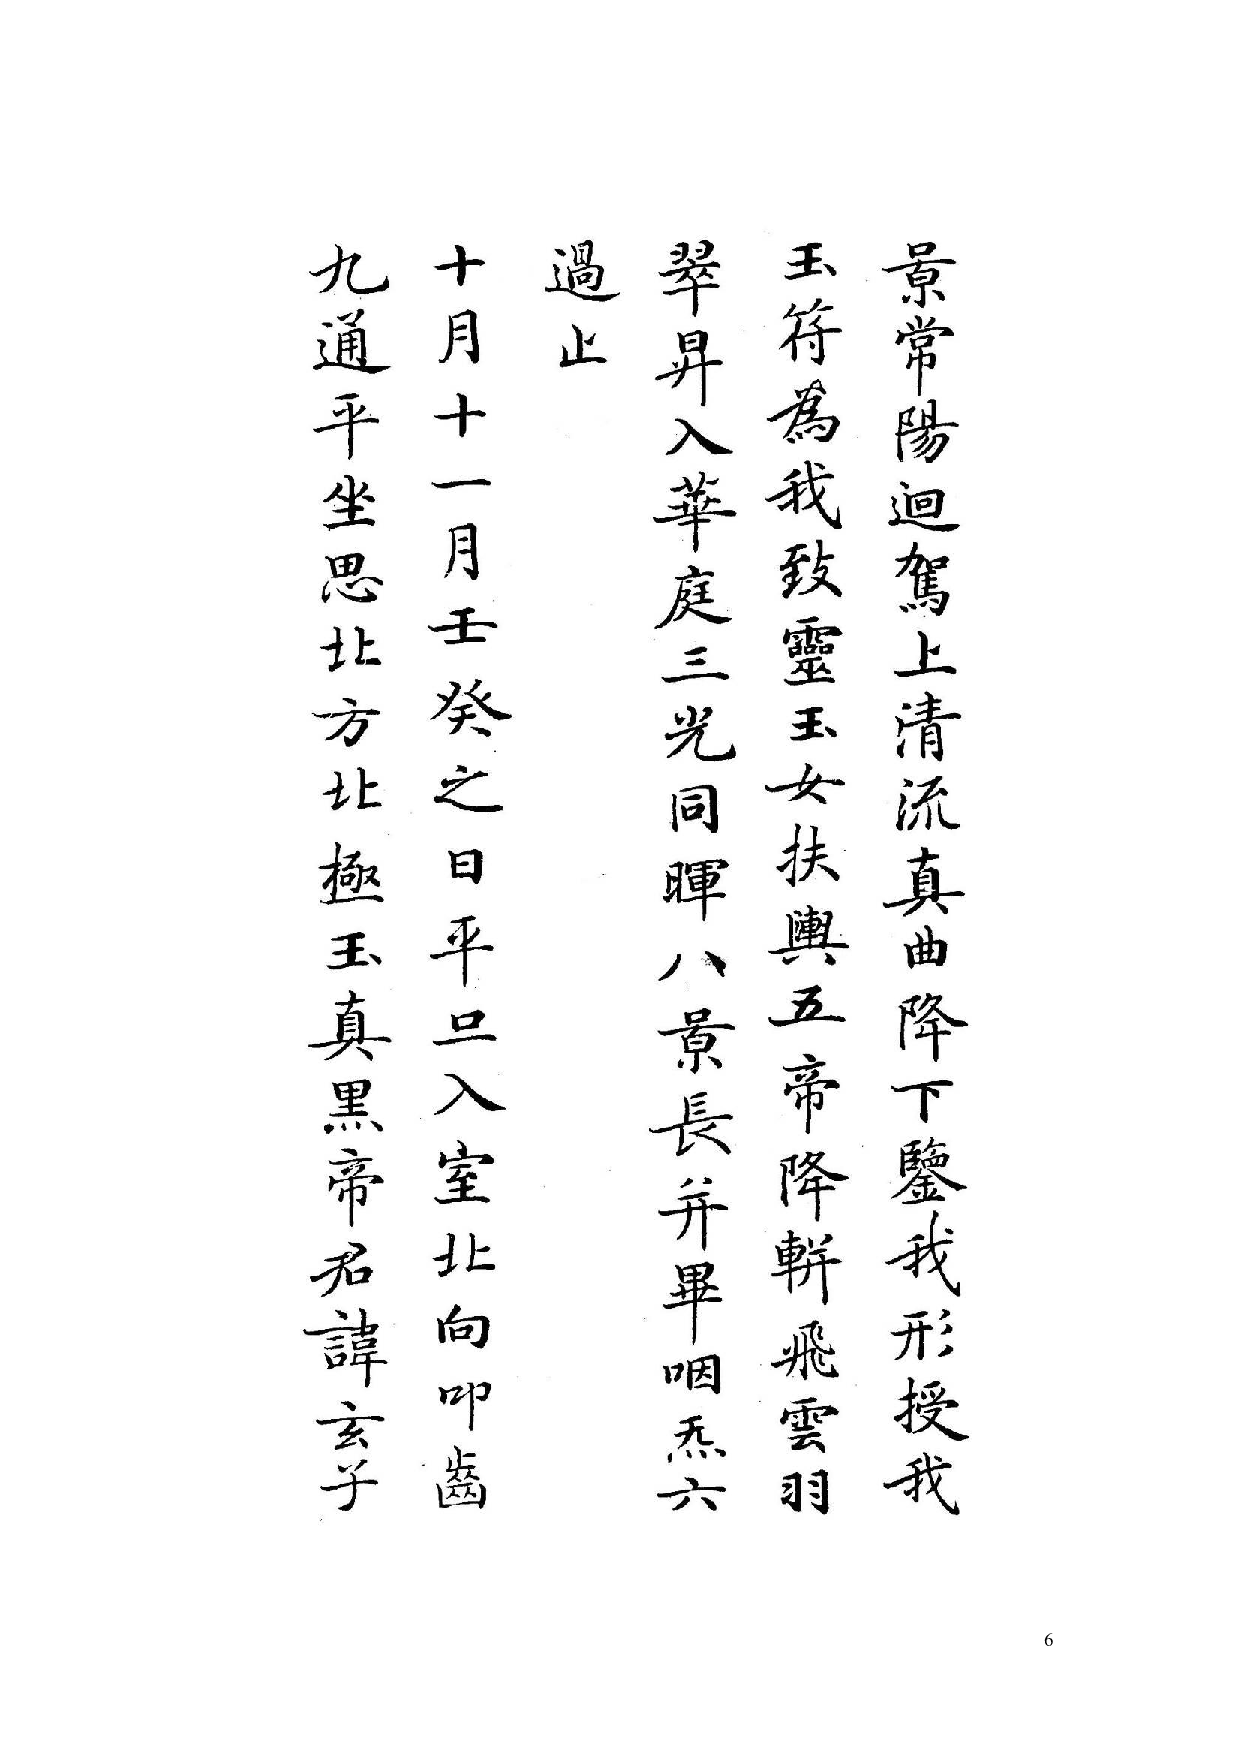 景常陽迴駕上清流真曲降下鑒我形授我
玉符為我致靈玉女扶輿五帝降軿飛雲羽
翠昇入華庭三光同暉八景長并畢咽炁六
過止
十月十一月壬癸之日平旦入室北向叩齒
九通平坐思北方北極玉真黑帝君諱玄子
6